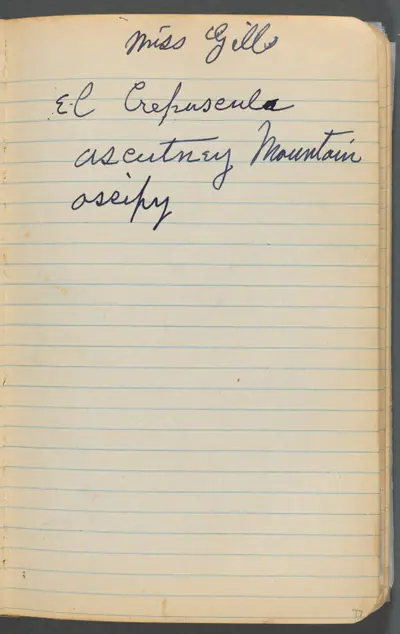 Miss Gill
El Crepuscula
ascutney Mountain
oscipy
77